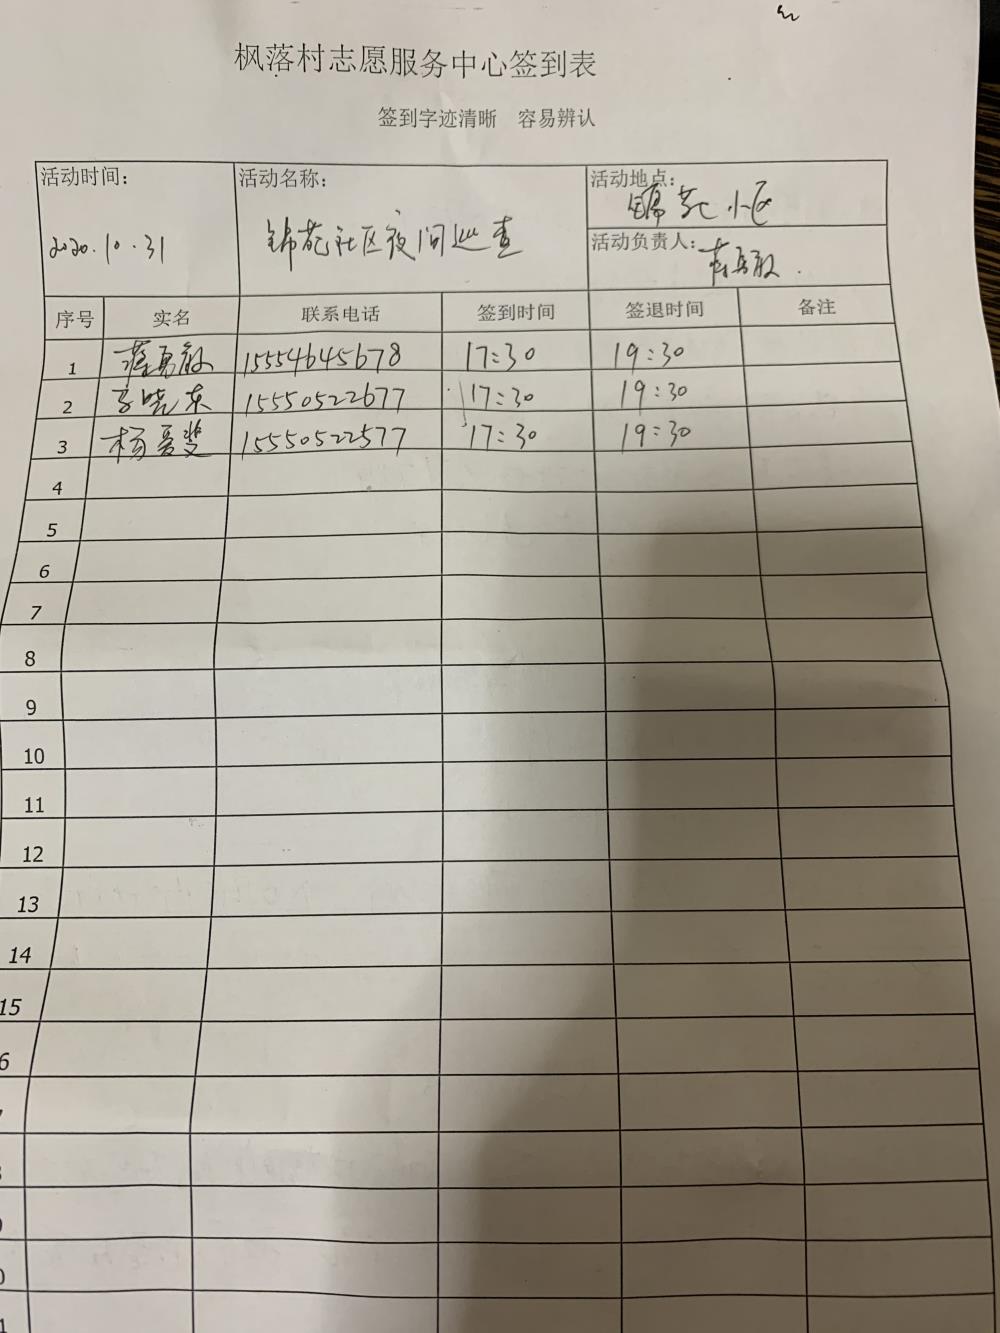 枫落村志愿服务中心签到表
签到字迹清晰 容易辨认
活动时间: 活动名称: 活动地点:
锦苑小区
2020.10.31 锦苑社区夜间巡查
活动负责人:
序号 实名 联系电话 签到时间 签退时间 备注
1 15554645678 17:30 19:30
2 李晓东 15550522677 17:30 19:30
3 杨 15550522577 17:30 19:30
4
5
6
7
8
9
10
11
12
13
14
15
6